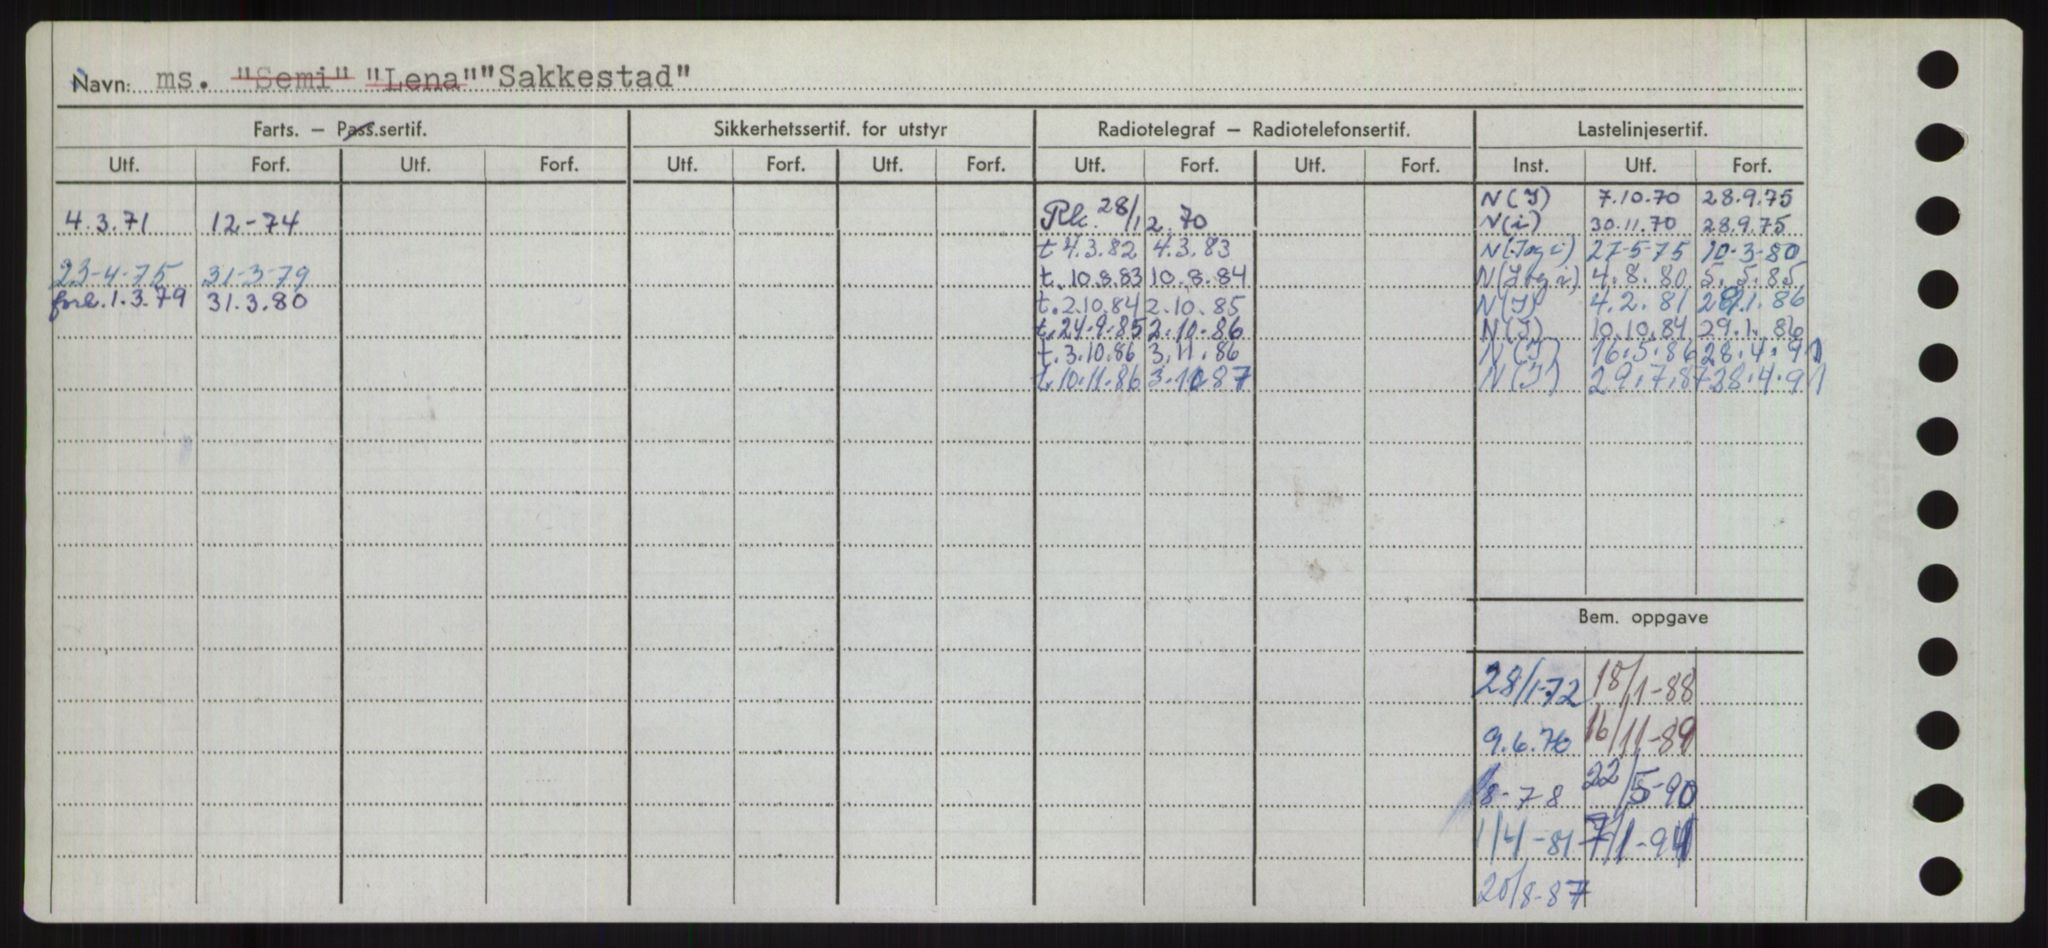 Navn: ms. "Semi" "Lena" "Sakkestad"
Farts. — Pass.sertif. Sikkerhetssertif. for utstyr Radiotelegraf — Radiotelefonsertif. Lastelinjesertif.
Utf. Forf. Utf. Forf. Utf. Forf. Utf. Forf. Utf. Forf. Utf. Forf. Inst. Utf. Forf.
N(I) 7.10.70 28.9.75
4.3.71 12-74 28/12.70 N(i) 30.11.70 28.9.75
t 4.3.82 4.3.83 N(I og i) 27-5-75 10-3-80
23-4-75 31-3-79 t. 10.8.83 10.8.84 N(I og i) 4.8.80 5.5.85
forl. 1.3.79 31.3.80 t. 2.10.84 2.10.85 N(I) 4.2.81 29.1.86
t. 24.9.85 2.10.86 N(I) 10.10.84 29.1.86
t. 3.10.86 3.11.86 N(I) 16.5.86 28.4.91
t. 10.11.86 3.10.87 N(I) 29.7.87 28.4.91
Bem. oppgave
28/1-72 18/1-88
9.6.76 16/11-89
8-78 22/5-90
1/4-81 7/1-94
20/8-87